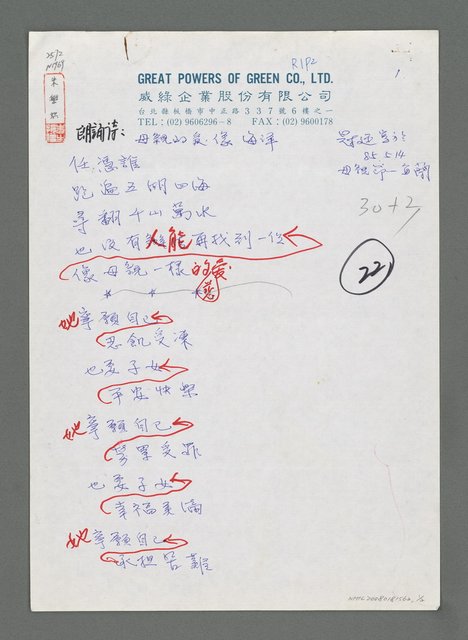 2512
R1P2
GREAT POWERS OF GREEN CO., LTD.
威綠企業股份有限公司
台北縣板橋市中正路337號6樓之一
TEL：(02) 9606296－8 FAX：(02) 9600178
朗誦詩：
母親的愛像海洋
85.5.14
任憑誰
跑遍五湖四海
尋翻千山萬水
也沒有人能再找到一份
像母親一樣的慈愛
30+2
22
她寧願自己
忍飢受凍
也要子女
平安快樂
她寧願自己
勞累受罪
也要子女
幸福美滿
她寧願自己
承担苦難